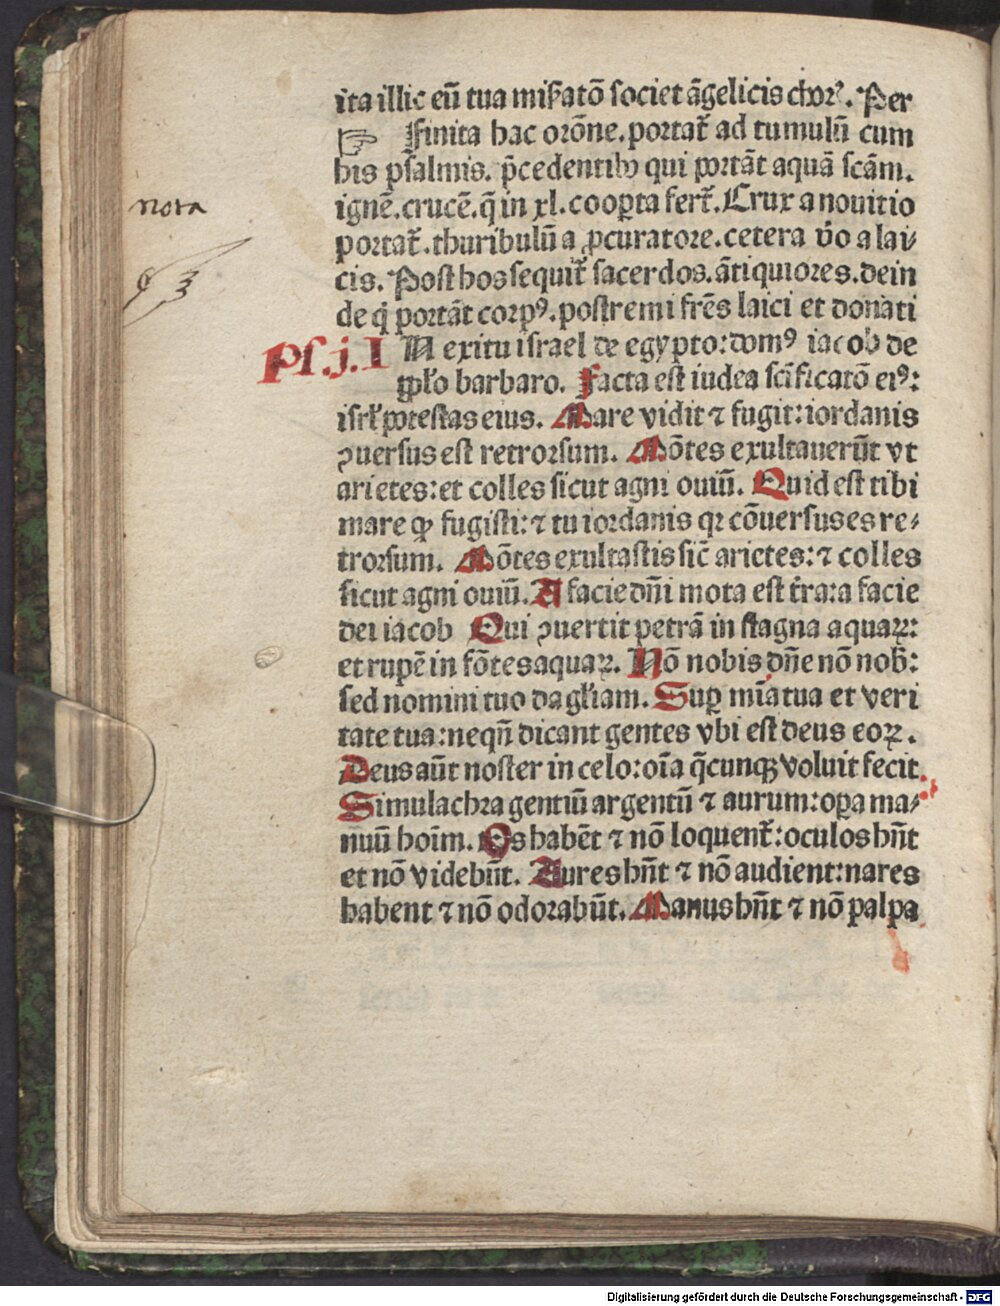 ita illic eū tua miẜatō ſociet āgelicis choꝛꝰ. Per
☞ Finita hac oꝛōne. poꝛtat̃ ad tumulū cum
his pſalmis. p̄cedentibꝫ qui poꝛtāt aquā ſcām.
nota
ignē. crucē. q̄ in xl. coopꝑta fert̃. Crux a nouitio
poꝛtat̃. thuribulū a ꝓcuratoꝛe. cetera v̄o a lai⸗
cis. Poſt hos ſequit̃ ſacerdos. ātiquioꝛes. dein
de q̇ poꝛtāt coꝛpꝰ. poſtremi frēs laici et donati
Pſ. j. IN exitu iſrael de egypto: domꝰ iacob de
ꝓpl'o barbaro. Facta eſt iudea ſcīficatō eiꝰ:
iſrl' poteſtas eius. Mare vidit ⁊ fugit: ioꝛdanis
ꝯuerſus eſt retroꝛſum. Mōtes exultauerūt vt
arietes: et colles ſicut agni ouiū. Quid eſt tibi
mare ꝙ fugiſti: ⁊ tu ioꝛdanis qꝛ cōuerſus es re⸗
troꝛſum. Mōtes exultaſtis ſic̄ arietes: ⁊ colles
ſicut agni ouiū. A facie dn̄i mota eſt t̄ra: a facie
dei iacob Qui ꝯuertit petrā in ſtagna aquaꝝ:
et rupē in fōtes aquaꝝ. Nō nobis dn̄e nō nob̄:
ſed nomini tuo da gl'iam. Suꝑ mīa tua et veri
tate tua: neqn̄ dicant gentes vbi eſt deus eoꝝ.
Deus aūt noſter in celo: oīa q̄cunqꝫ voluit fecit.
Simulachꝛa gentiū argentū ⁊ aurum: oꝑa ma⸗
nuū hoīm. Os habēt ⁊ nō loquent̃: oculos hn̄t
et nō videbūt. Aures hn̄t ⁊ nō audient: nares
habent ⁊ nō odoꝛabūt. Manus hn̄t ⁊ nō palpa
Digitalisierung gefördert durch die Deutsche Forschungsgemeinschaft - DFG